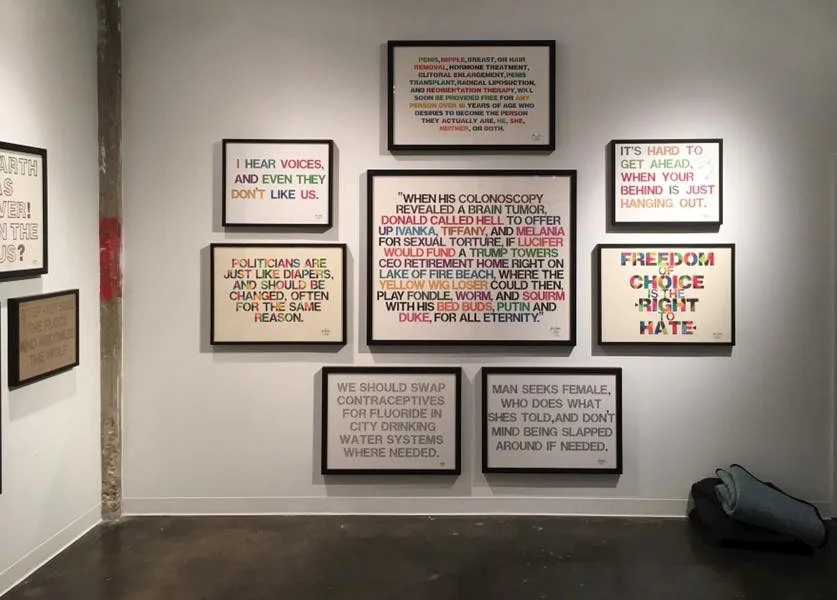 PENIS, NIPPLE, BREAST, OR HAIR
REMOVAL, HORMONE TREATMENT,
CLITORAL ENLARGEMENT, PENIS
TRANSPLANT, RADICAL LIPOSUCTION,
AND REORIENTATION THERAPY, WILL
SOON BE PROVIDED FREE FOR ANY
PERSON OVER 16 YEARS OF AGE WHO
DESIRES TO BECOME THE PERSON
THEY ACTUALLY ARE, HE, SHE,
NEITHER, OR BOTH.
I HEAR VOICES,
AND EVEN THEY
DON'T LIKE US.
IT'S HARD TO
GET AHEAD,
WHEN YOUR
BEHIND IS JUST
HANGING OUT.
ARTH
AS
VER!
N THE
US?
"WHEN HIS COLONOSCOPY
REVEALED A BRAIN TUMOR,
DONALD CALLED HELL TO OFFER
UP IVANKA, TIFFANY, AND MELANIA
FOR SEXUAL TORTURE, IF LUCIFER
WOULD FUND A TRUMP TOWERS
CEO RETIREMENT HOME RIGHT ON
LAKE OF FIRE BEACH, WHERE THE
YELLOW WIG LOSER COULD THEN,
PLAY FONDLE, WORM, AND SQUIRM
WITH HIS BED BUDS, PUTIN AND
DUKE, FOR ALL ETERNITY."
POLITICIANS ARE
JUST LIKE DIAPERS,
AND SHOULD BE
CHANGED, OFTEN
FOR THE SAME
REASON.
FREEDOM
OF
CHOICE
IS THE
RIGHT
TO
HATE
STEP OUT
THE FLOCK
AND
THE WOLF
WE SHOULD SWAP
CONTRACEPTIVES
FOR FLUORIDE IN
CITY DRINKING
WATER SYSTEMS
WHERE NEEDED.
MAN SEEKS FEMALE,
WHO DOES WHAT
SHES TOLD,AND DON'T
MIND BEING SLAPPED
AROUND IF NEEDED.